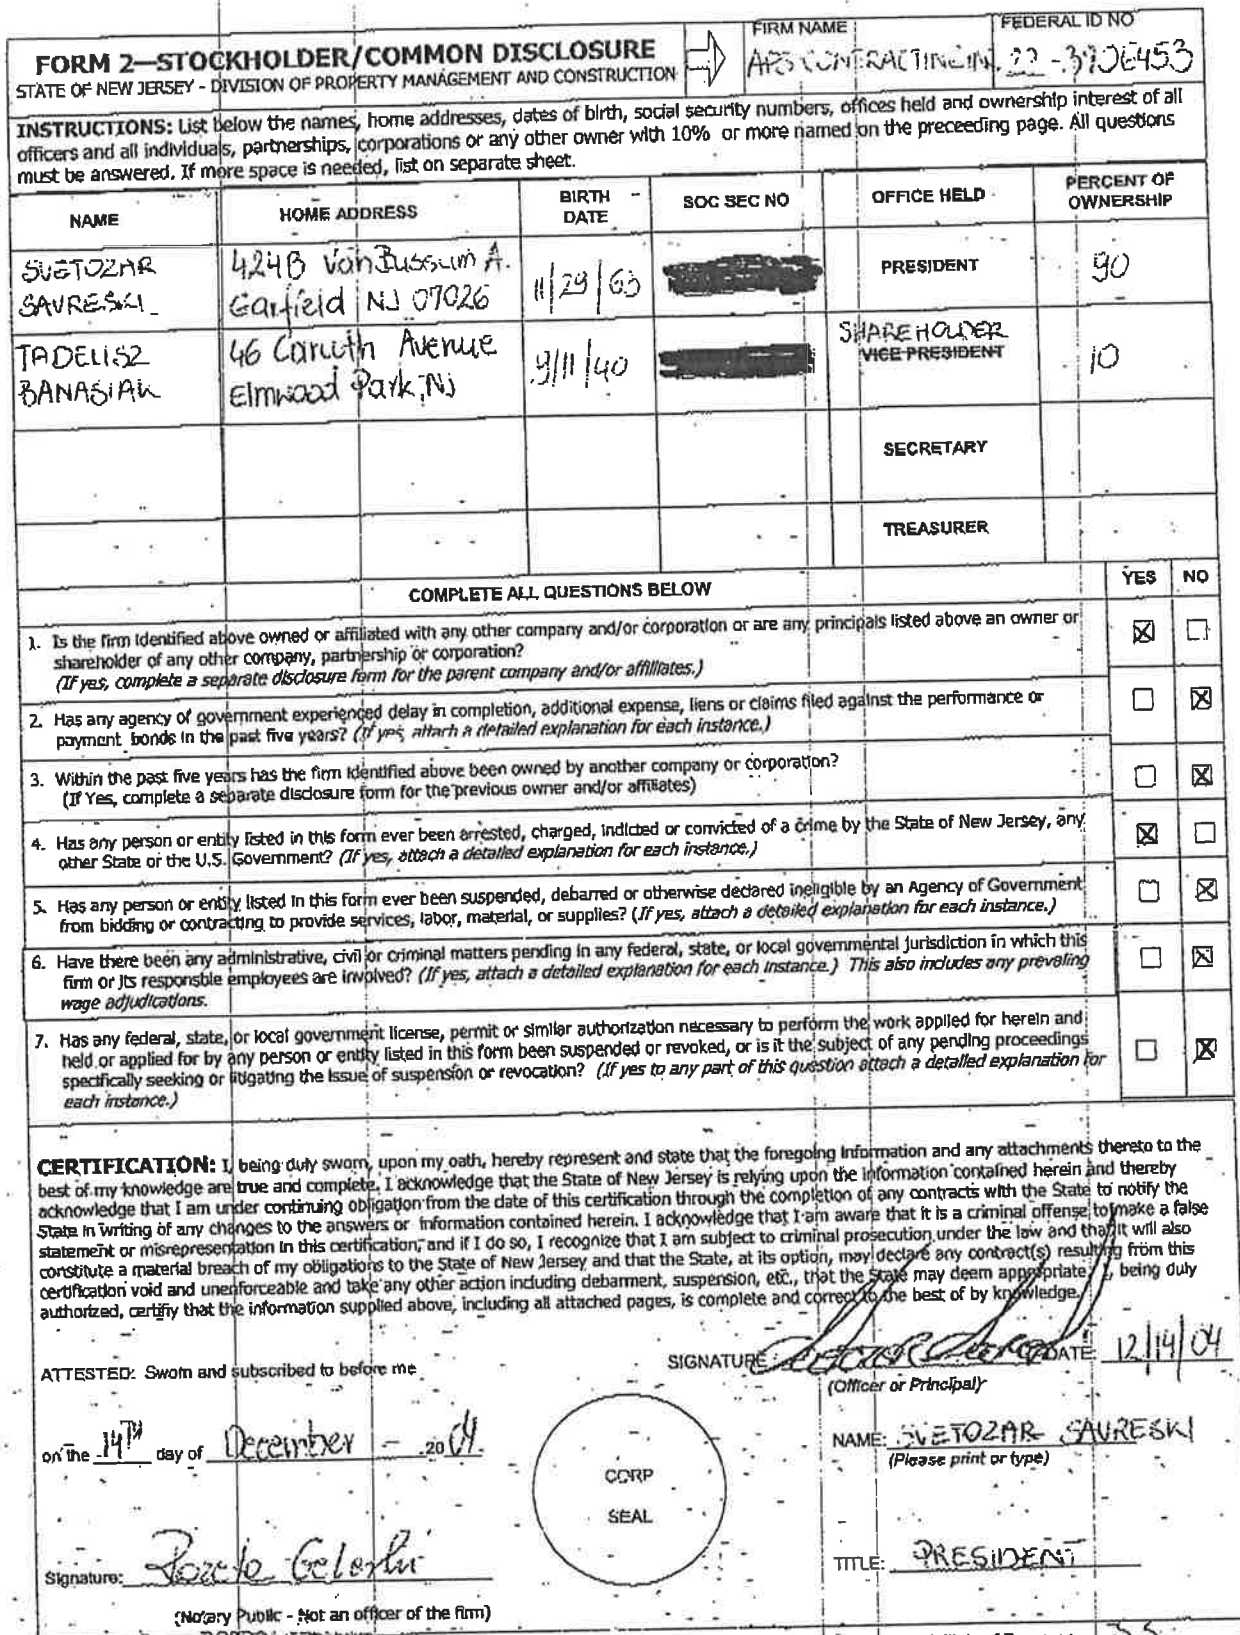 FORM 2—STOCKHOLDER/COMMON DISCLOSURE
STATE OF NEW JERSEY - DIVISION OF PROPERTY MANAGEMENT AND CONSTRUCTION
FIRM NAME
APS CONTRACTING IN.
FEDERAL ID NO
INSTRUCTIONS: List below the names, home addresses, dates of birth, social security numbers, offices held and ownership interest of all
officers and all individuals, partnerships, corporations or any other owner with 10% or more named on the preceeding page. All questions
must be answered. If more space is needed, list on separate sheet.
NAME HOME ADDRESS BIRTH DATE SOC SEC NO OFFICE HELD PERCENT OF OWNERSHIP
SVETOZAR 424B Van Bussum A. PRESIDENT 90
SAVRESKI Garfield NJ 07026 11/29/63
TADEUSZ 46 Caruth Avenue 9/11/40 SHAREHOLDER 10
BANASIAK Elmwood Park, NJ VICE PRESIDENT
SECRETARY
TREASURER
COMPLETE ALL QUESTIONS BELOW YES NO
1. Is the firm identified above owned or affiliated with any other company and/or corporation or are any principals listed above an owner or
shareholder of any other company, partnership or corporation?
(If yes, complete a separate disclosure form for the parent company and/or affiliates.)
2. Has any agency of government experienced delay in completion, additional expense, liens or claims filed against the performance or
payment bonds in the past five years? (If yes, attach a detailed explanation for each instance.)
3. Within the past five years has the firm identified above been owned by another company or corporation?
(If Yes, complete a separate disclosure form for the previous owner and/or affiliates)
4. Has any person or entity listed in this form ever been arrested, charged, indicted or convicted of a crime by the State of New Jersey, any
other State or the U.S. Government? (If yes, attach a detailed explanation for each instance.)
5. Has any person or entity listed in this form ever been suspended, debarred or otherwise declared ineligible by an Agency of Government
from bidding or contracting to provide services, labor, material, or supplies? (If yes, attach a detailed explanation for each instance.)
6. Have there been any administrative, civil or criminal matters pending in any federal, state, or local governmental jurisdiction in which this
firm or its responsble employees are involved? (If yes, attach a detailed explanation for each instance.) This also includes any prevaling
wage adjudications.
7. Has any federal, state, or local government license, permit or similar authorization necessary to perform the work applied for herein and
held or applied for by any person or entity listed in this form been suspended or revoked, or is it the subject of any pending proceedings
specifically seeking or litigating the issue of suspension or revocation? (If yes to any part of this question attach a detailed explanation for
each instance.)
CERTIFICATION: I, being duly sworn, upon my oath, hereby represent and state that the foregoing information and any attachments thereto to the
best of my knowledge are true and complete. I acknowledge that the State of New Jersey is relying upon the information contained herein and thereby
acknowledge that I am under continuing obligation from the date of this certification through the completion of any contracts with the State to notify the
State in writing of any changes to the answers or information contained herein. I acknowledge that I am aware that it is a criminal offense to make a false
statement or misrepresentation in this certification, and if I do so, I recognize that I am subject to criminal prosecution under the law and that it will also
constitute a material breach of my obligations to the State of New Jersey and that the State, at its option, may declare any contract(s) resulting from this
certification void and unenforceable and take any other action including debarment, suspension, etc., that the State may deem appropriate. I, being duly
authorized, certifiy that the information supplied above, including all attached pages, is complete and correct to the best of by knowledge.
ATTESTED: Sworn and subscribed to before me
SIGNATURE: DATE: 12/14/04
(Officer or Principal)
on the 14TH day of December - 20 04.
NAME: SVETOZAR SAVRESKI
(Please print or type)
CORP
SEAL
TITLE: PRESIDENT
Signature:
(Notary Public - Not an officer of the firm)